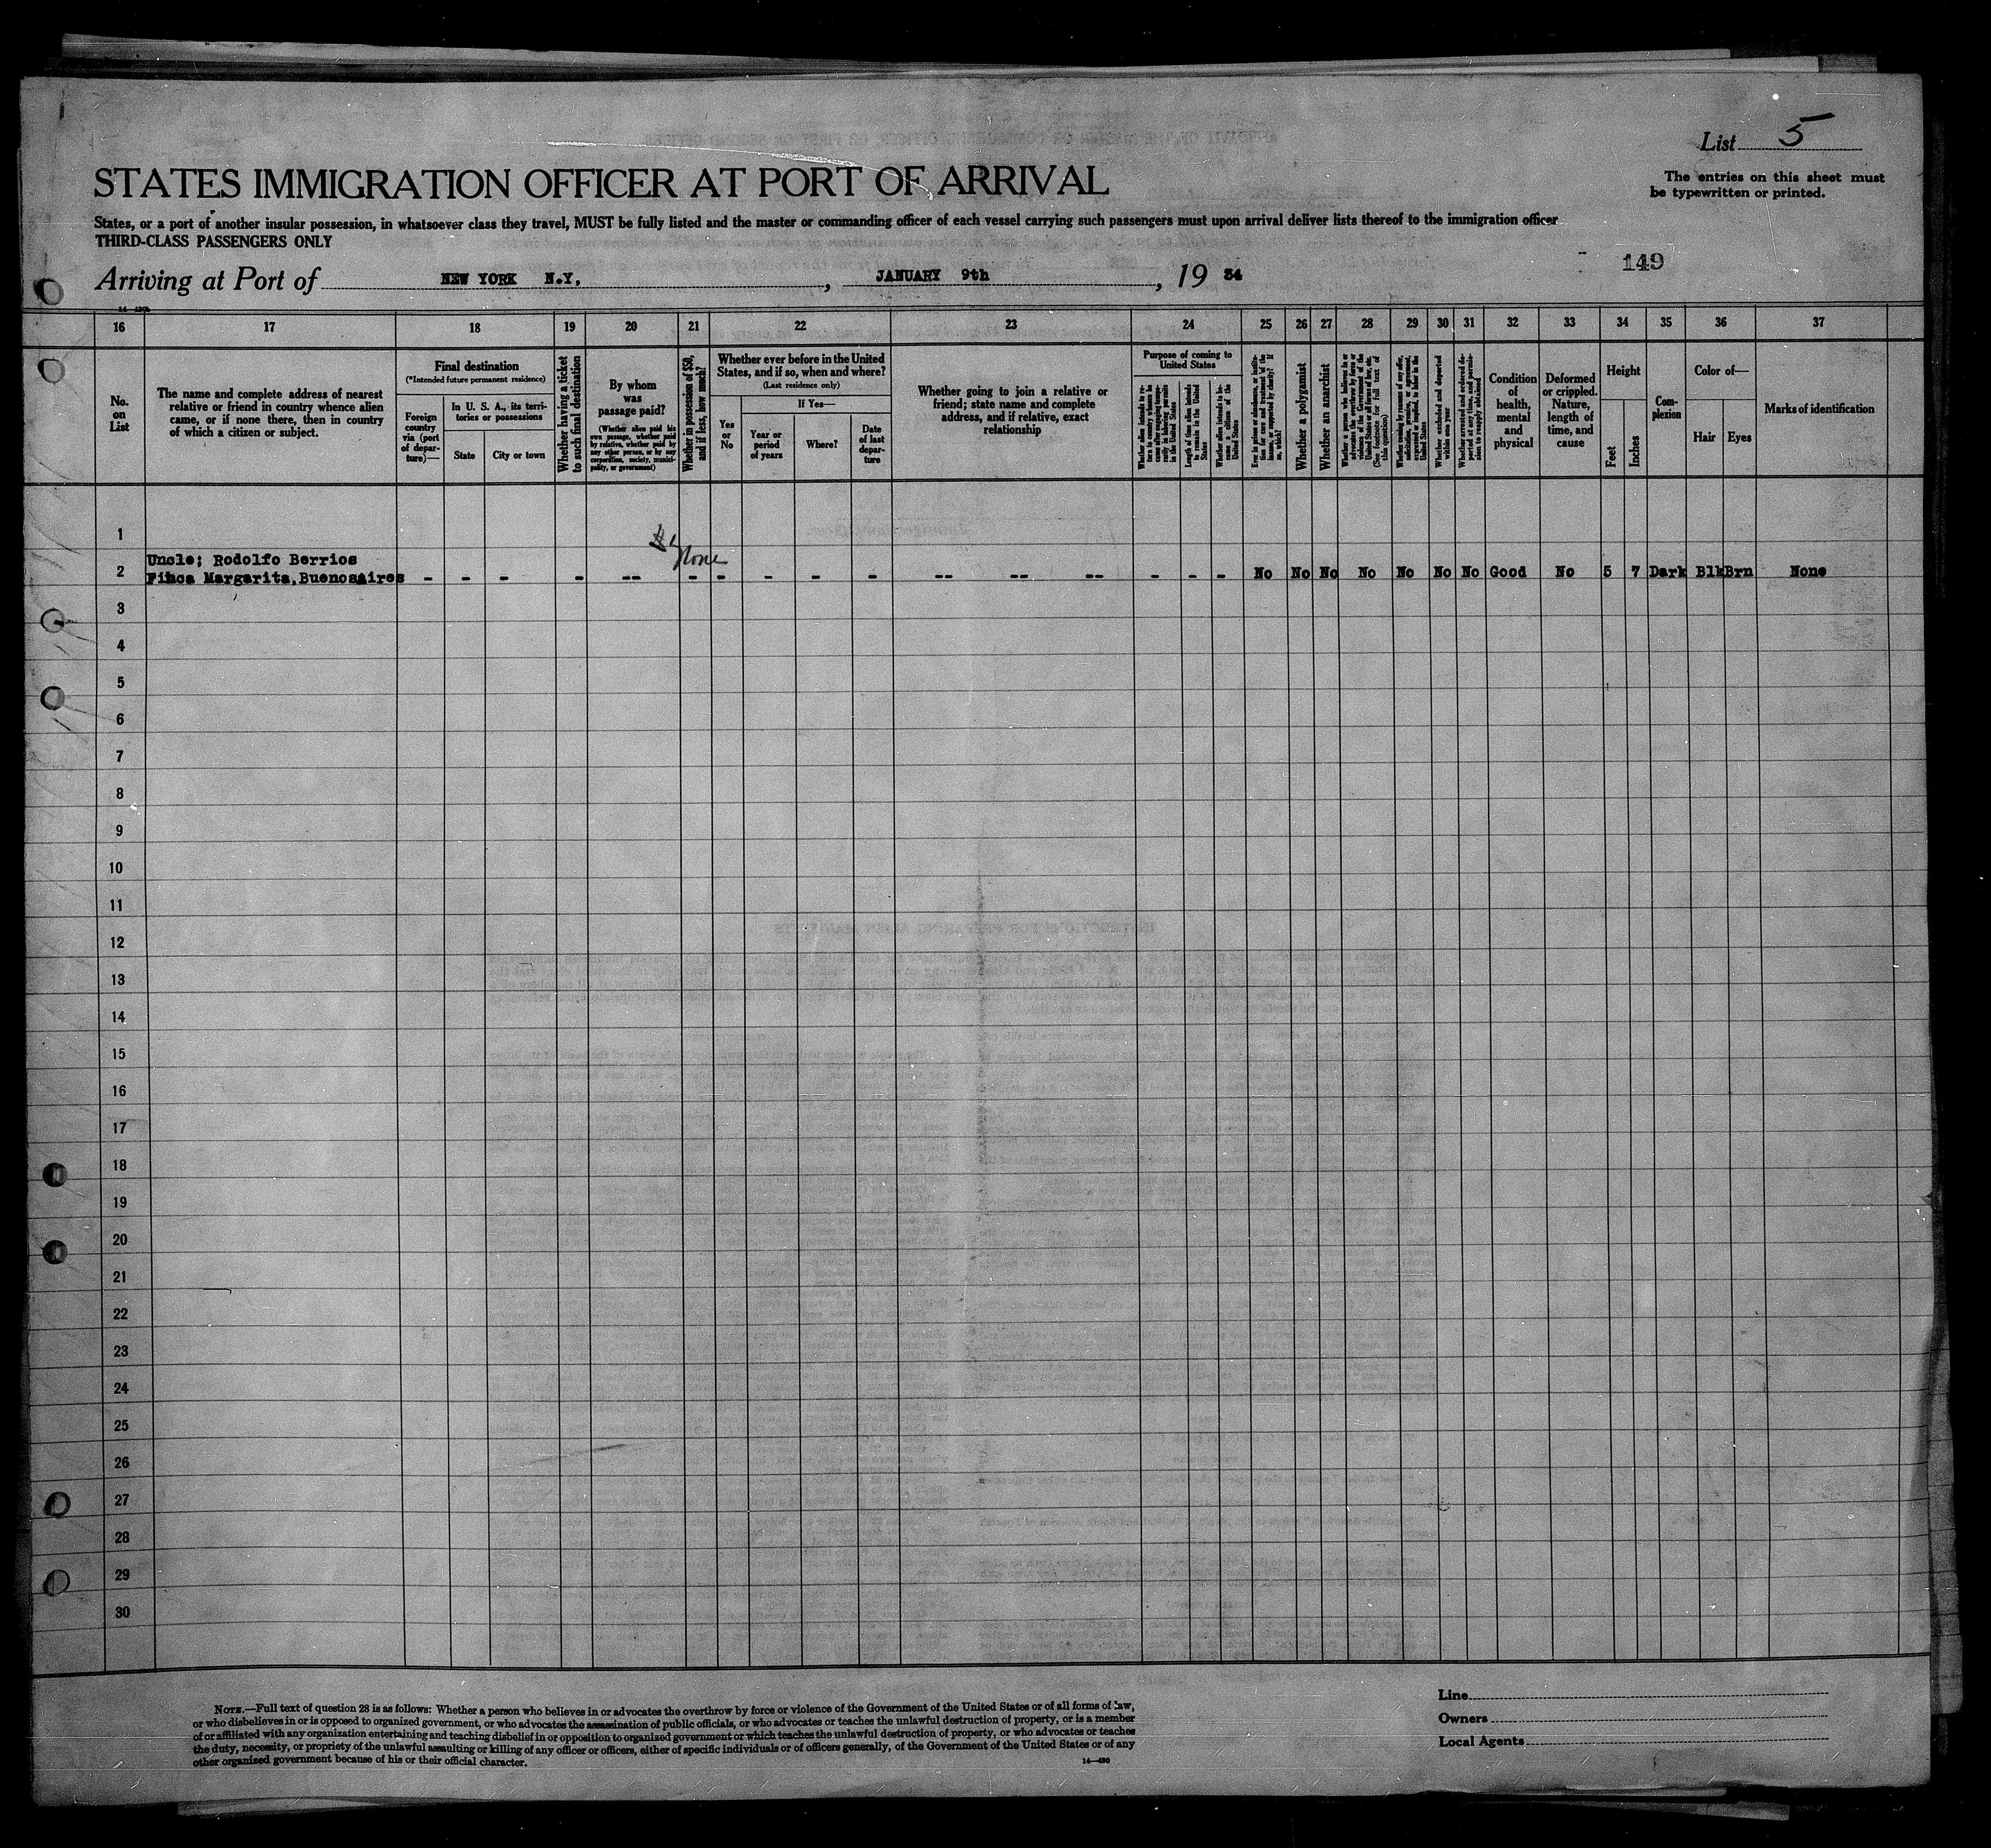 List 5
STATES IMMIGRATION OFFICER AT PORT OF ARRIVAL
The entries on this sheet must
be typewritten or printed.
States, or a port of another insular possession, in whatsoever class they travel, MUST be fully listed and the master or commanding officer of each vessel carrying such passengers must upon arrival deliver lists thereof to the immigration officer
THIRD-CLASS PASSENGERS ONLY
149
Arriving at Port of NEW YORK N.Y, , JANUARY 9th , 19 34
16 17 18 19 20 21 22 23 24 25 26 27 28 29 30 31 32 33 34 35 36 37
No.
on
List
The name and complete address of nearest
relative or friend in country whence alien
came, or if none there, then in country
of which a citizen or subject.
Final destination
(*Intended future permanent residence)
Foreign
country
via (port
of depar-
ture)—
In U. S. A., its terri-
tories or possessions
State
City or town
Whether having a ticket
to such final destination
By whom
was
passage paid?
(Whether alien paid his
own passage, whether paid
by relative, whether paid by
any other person, or by any
corporation, society, munici-
pality, or government)
Whether in possession of $50,
and if less, how much?
Whether ever before in the United
States, and if so, when and where?
(Last residence only)
Yes
or
No
If Yes—
Year or
period
of years
Where?
Date
of last
depar-
ture
Whether going to join a relative or
friend; state name and complete
address, and if relative, exact
relationship
Purpose of coming to
United States
Whether alien intends to re-
turn to country whence he
came after engaging tempo-
rarily in laboring pursuits
in the United States
Length of time alien intends
to remain in the United
States
Whether alien intends to be-
come a citizen of the
United States
Ever in prison or almshouse, or institu-
tion for care and treatment of the
insane, or supported by charity? If
so, which?
Whether a polygamist
Whether an anarchist
Whether a person who believes in or
advocates the overthrow by force or
violence of the Government of the
United States or all forms of law, etc.
(See footnote for full text of
this question)
Whether coming by reason of any offer,
solicitation, promise, or agreement,
expressed or implied, to labor in the
United States
Whether excluded and deported
within one year
Whether arrested and ordered de-
ported at any time, and permis-
sion to reapply obtained
Condition
of
health,
mental
and
physical
Deformed
or crippled.
Nature,
length of
time, and
cause
Height
Feet
Inches
Com-
plexion
Color of—
Hair
Eyes
Marks of identification
1
None
Uncle; Rodolfo Berrios
2 Finca Margarita, BuenosAires - - - - -- - - - - - -- -- -- - - - No No No No No No No Good No 5 7 Dark Blk Brn None
3
4
5
6
7
8
9
10
11
12
13
14
15
16
17
18
19
20
21
22
23
24
25
26
27
28
29
30
NOTE.—Full text of question 28 is as follows: Whether a person who believes in or advocates the overthrow by force or violence of the Government of the United States or of all forms of law,
or who disbelieves in or is opposed to organized government, or who advocates the assassination of public officials, or who advocates or teaches the unlawful destruction of property, or is a member
of or affiliated with any organization entertaining and teaching disbelief in or opposition to organized government or which teaches the unlawful destruction of property, or who advocates or teaches
the duty, necessity, or propriety of the unlawful assaulting or killing of any officer or officers, either of specific individuals or of officers generally, of the Government of the United States or of any
other organized government because of his or their official character.
14—430
Line
Owners
Local Agents